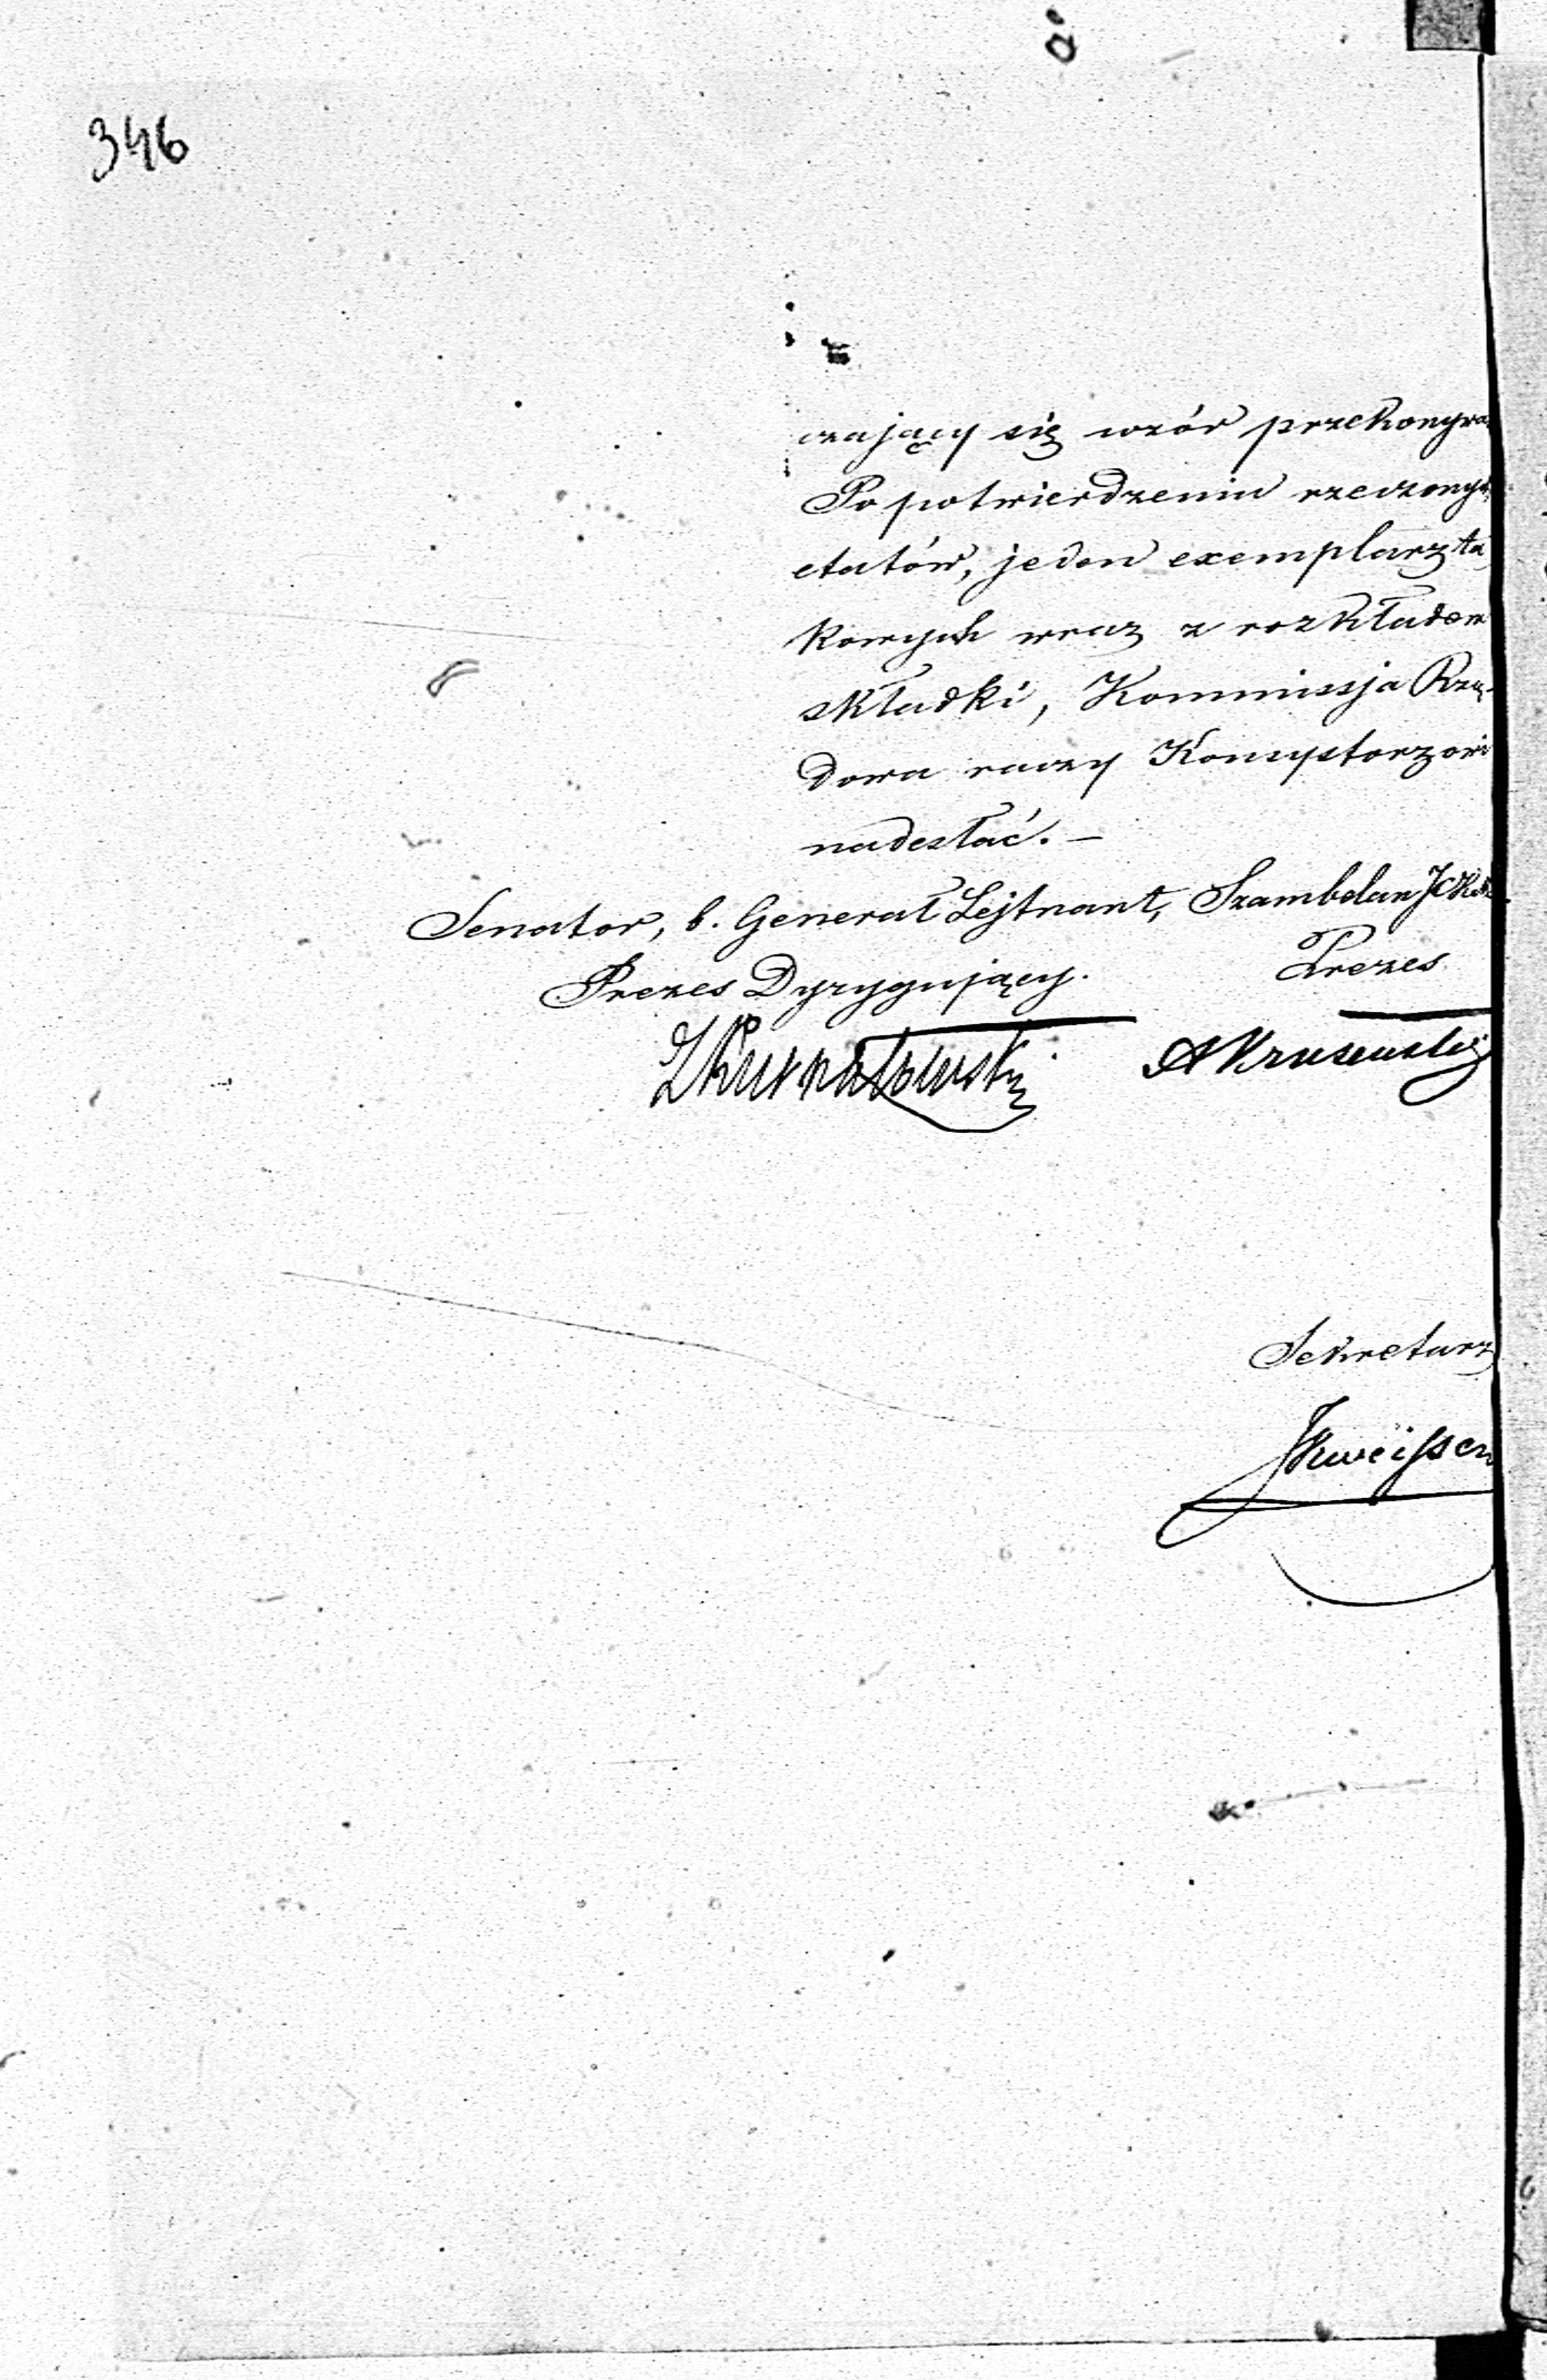 346
czający się wzór przekonywa.
Po potwierdzeniu rzeczonych
etatów, jeden exemplarz ta
kowych wraz z rozkładem
składki, Kommissja Rzą-
dowa raczy Konsystorzowi
nadesłać. —
Senator, b. Generał Lejtnant, Szambelan
Prezes Dyrygujący. Prezes
Kurnatowski
Sekretarz